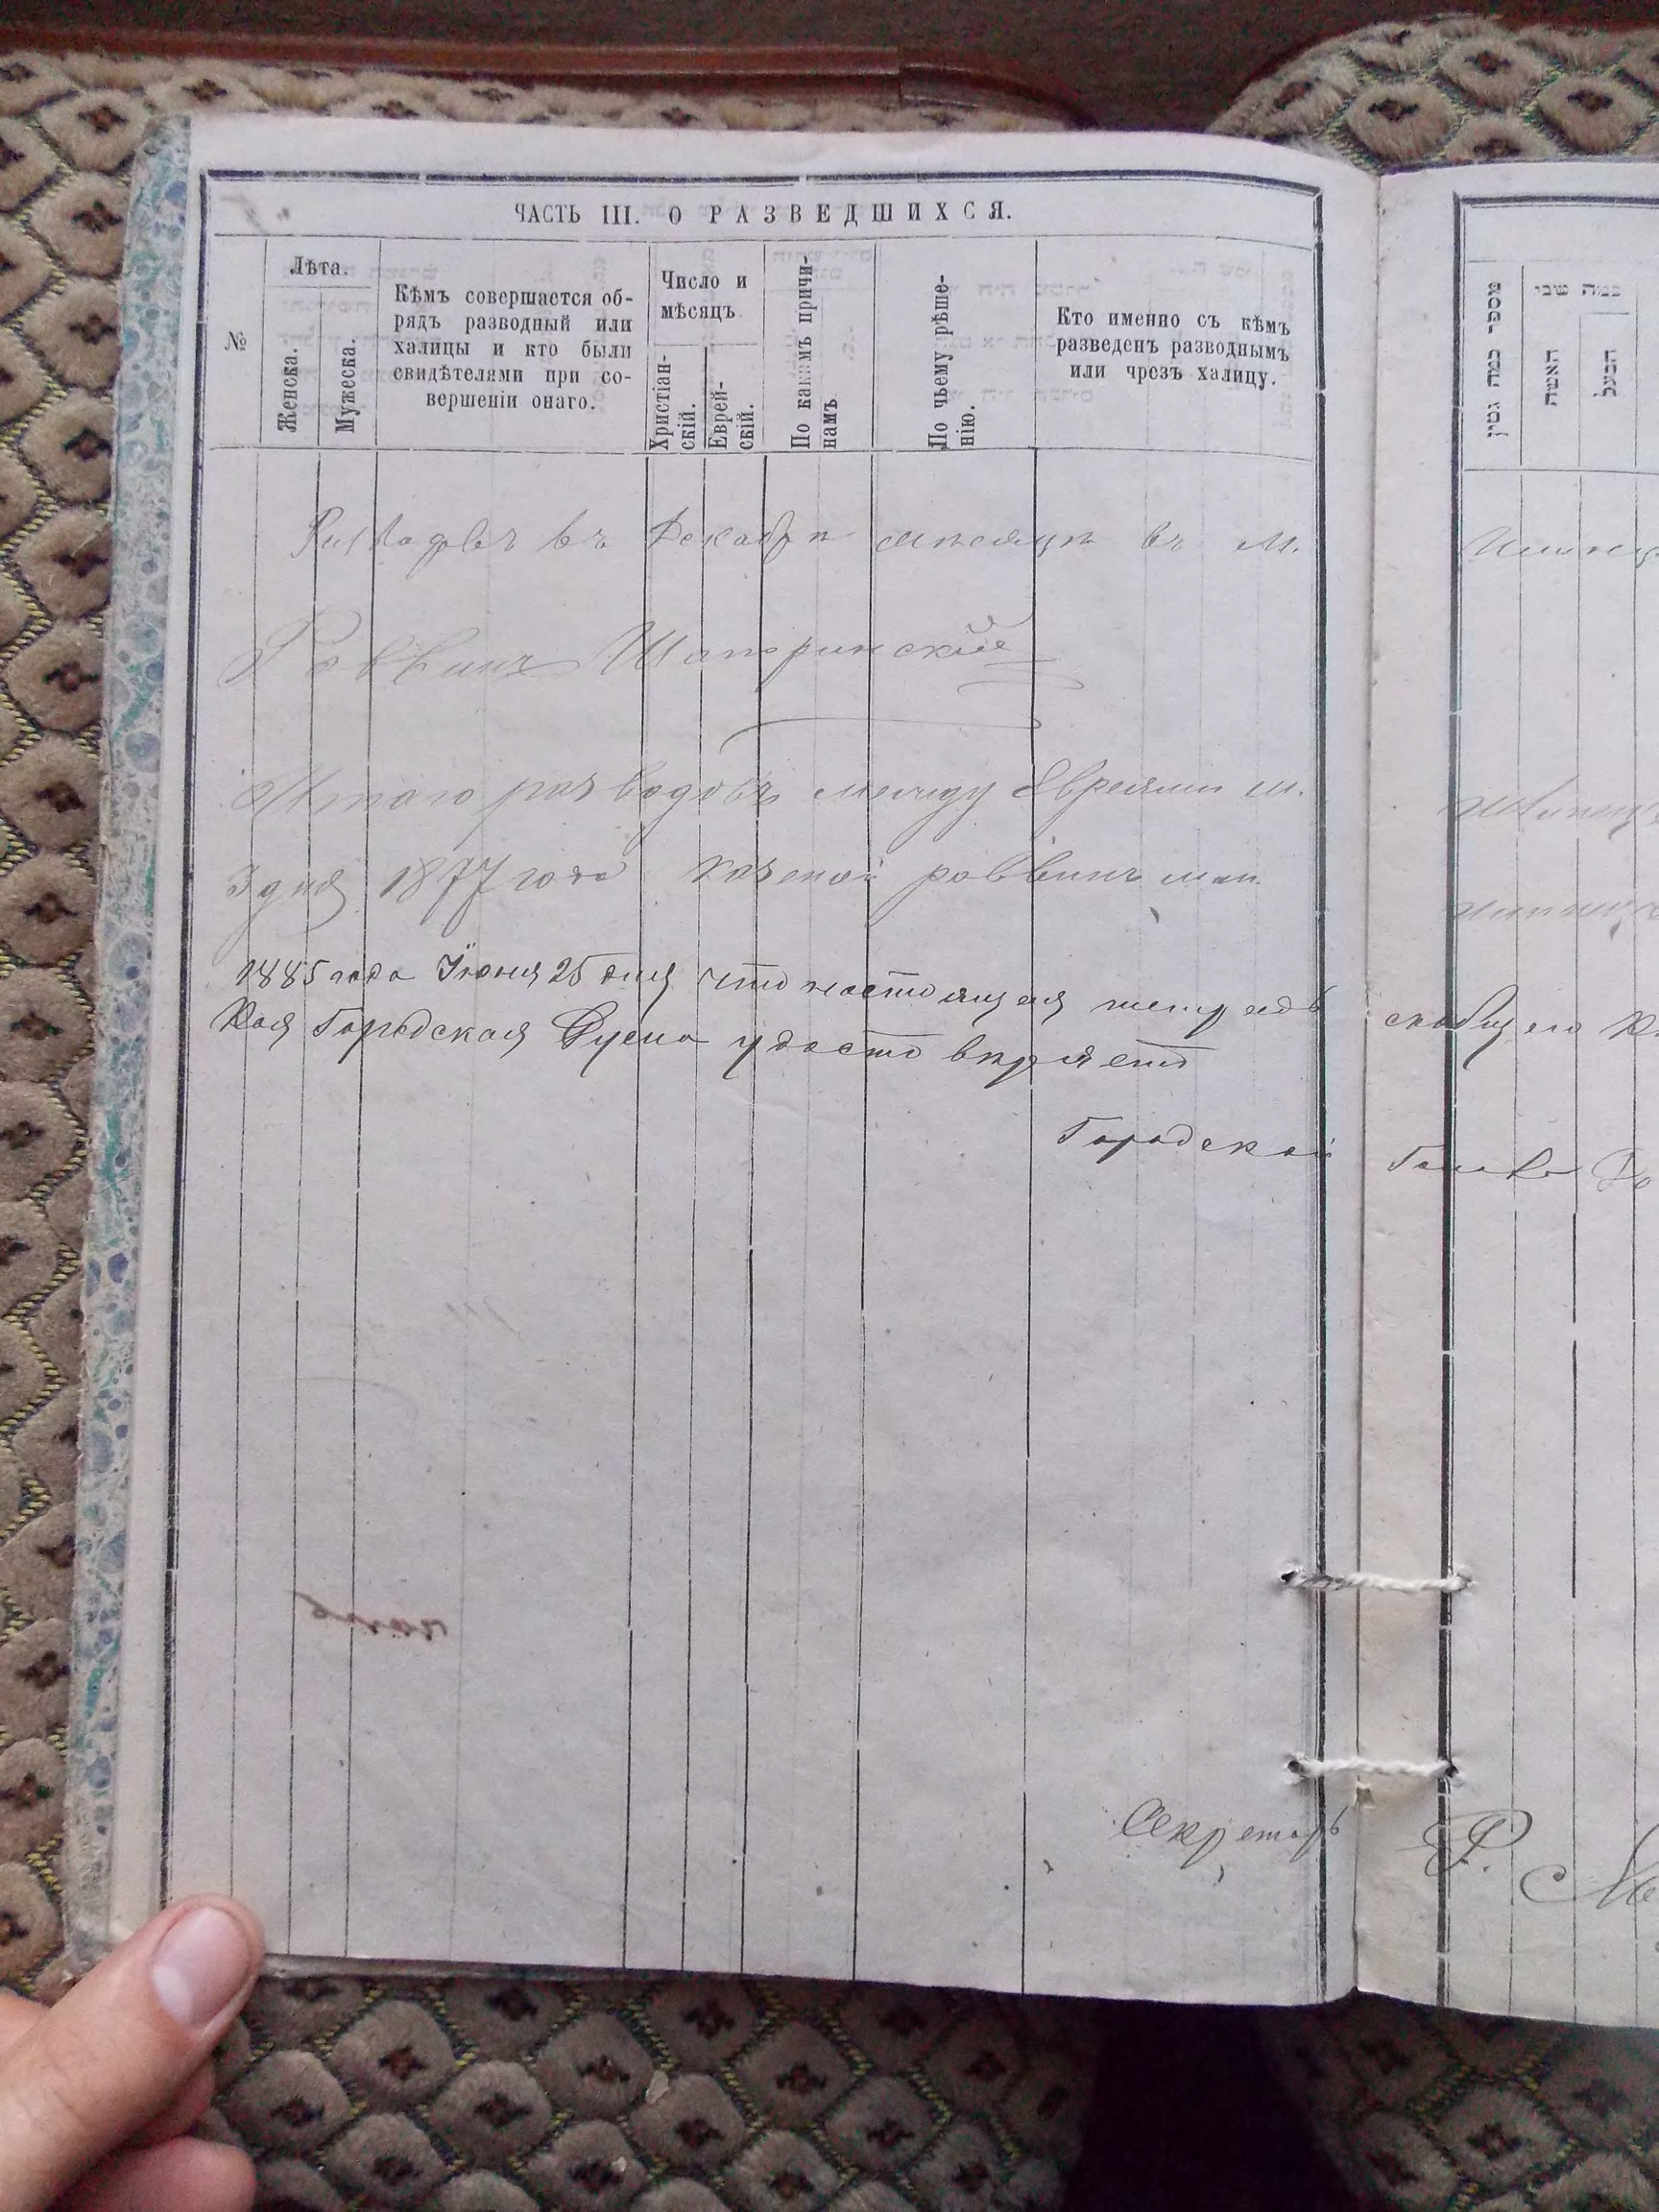 ЧАСТЬ III. О РАЗВЕДШИХСЯ.
№
Лѣта.
Женска.
Мужеска.
Кѣмъ совершается об-
рядъ разводный или
халицы и кто были
свидѣтелями при со-
вершеніи онаго.
Число и
мѣсяцъ
Христіан-
скій.
Еврей-
скій.
По какимъ причи-
намъ.
По чьему рѣше-
нію.
Кто именно съ кѣмъ
разведенъ разводнымъ
или чрезъ халицу.
Разводовъ въ Декабрѣ мѣсяцѣ въ м.
Раввинъ
Итого разводовъ между Евреями м.
3 дня 1877 года казеной раввинъ
1885 года Июня 25 дня что настоящая тетрадь
кая Городская Дума удостовѣряетъ
Городской
Секретарь
מספר כמה גטין
כמה שני
האשה
הבעל
Голова
Р.